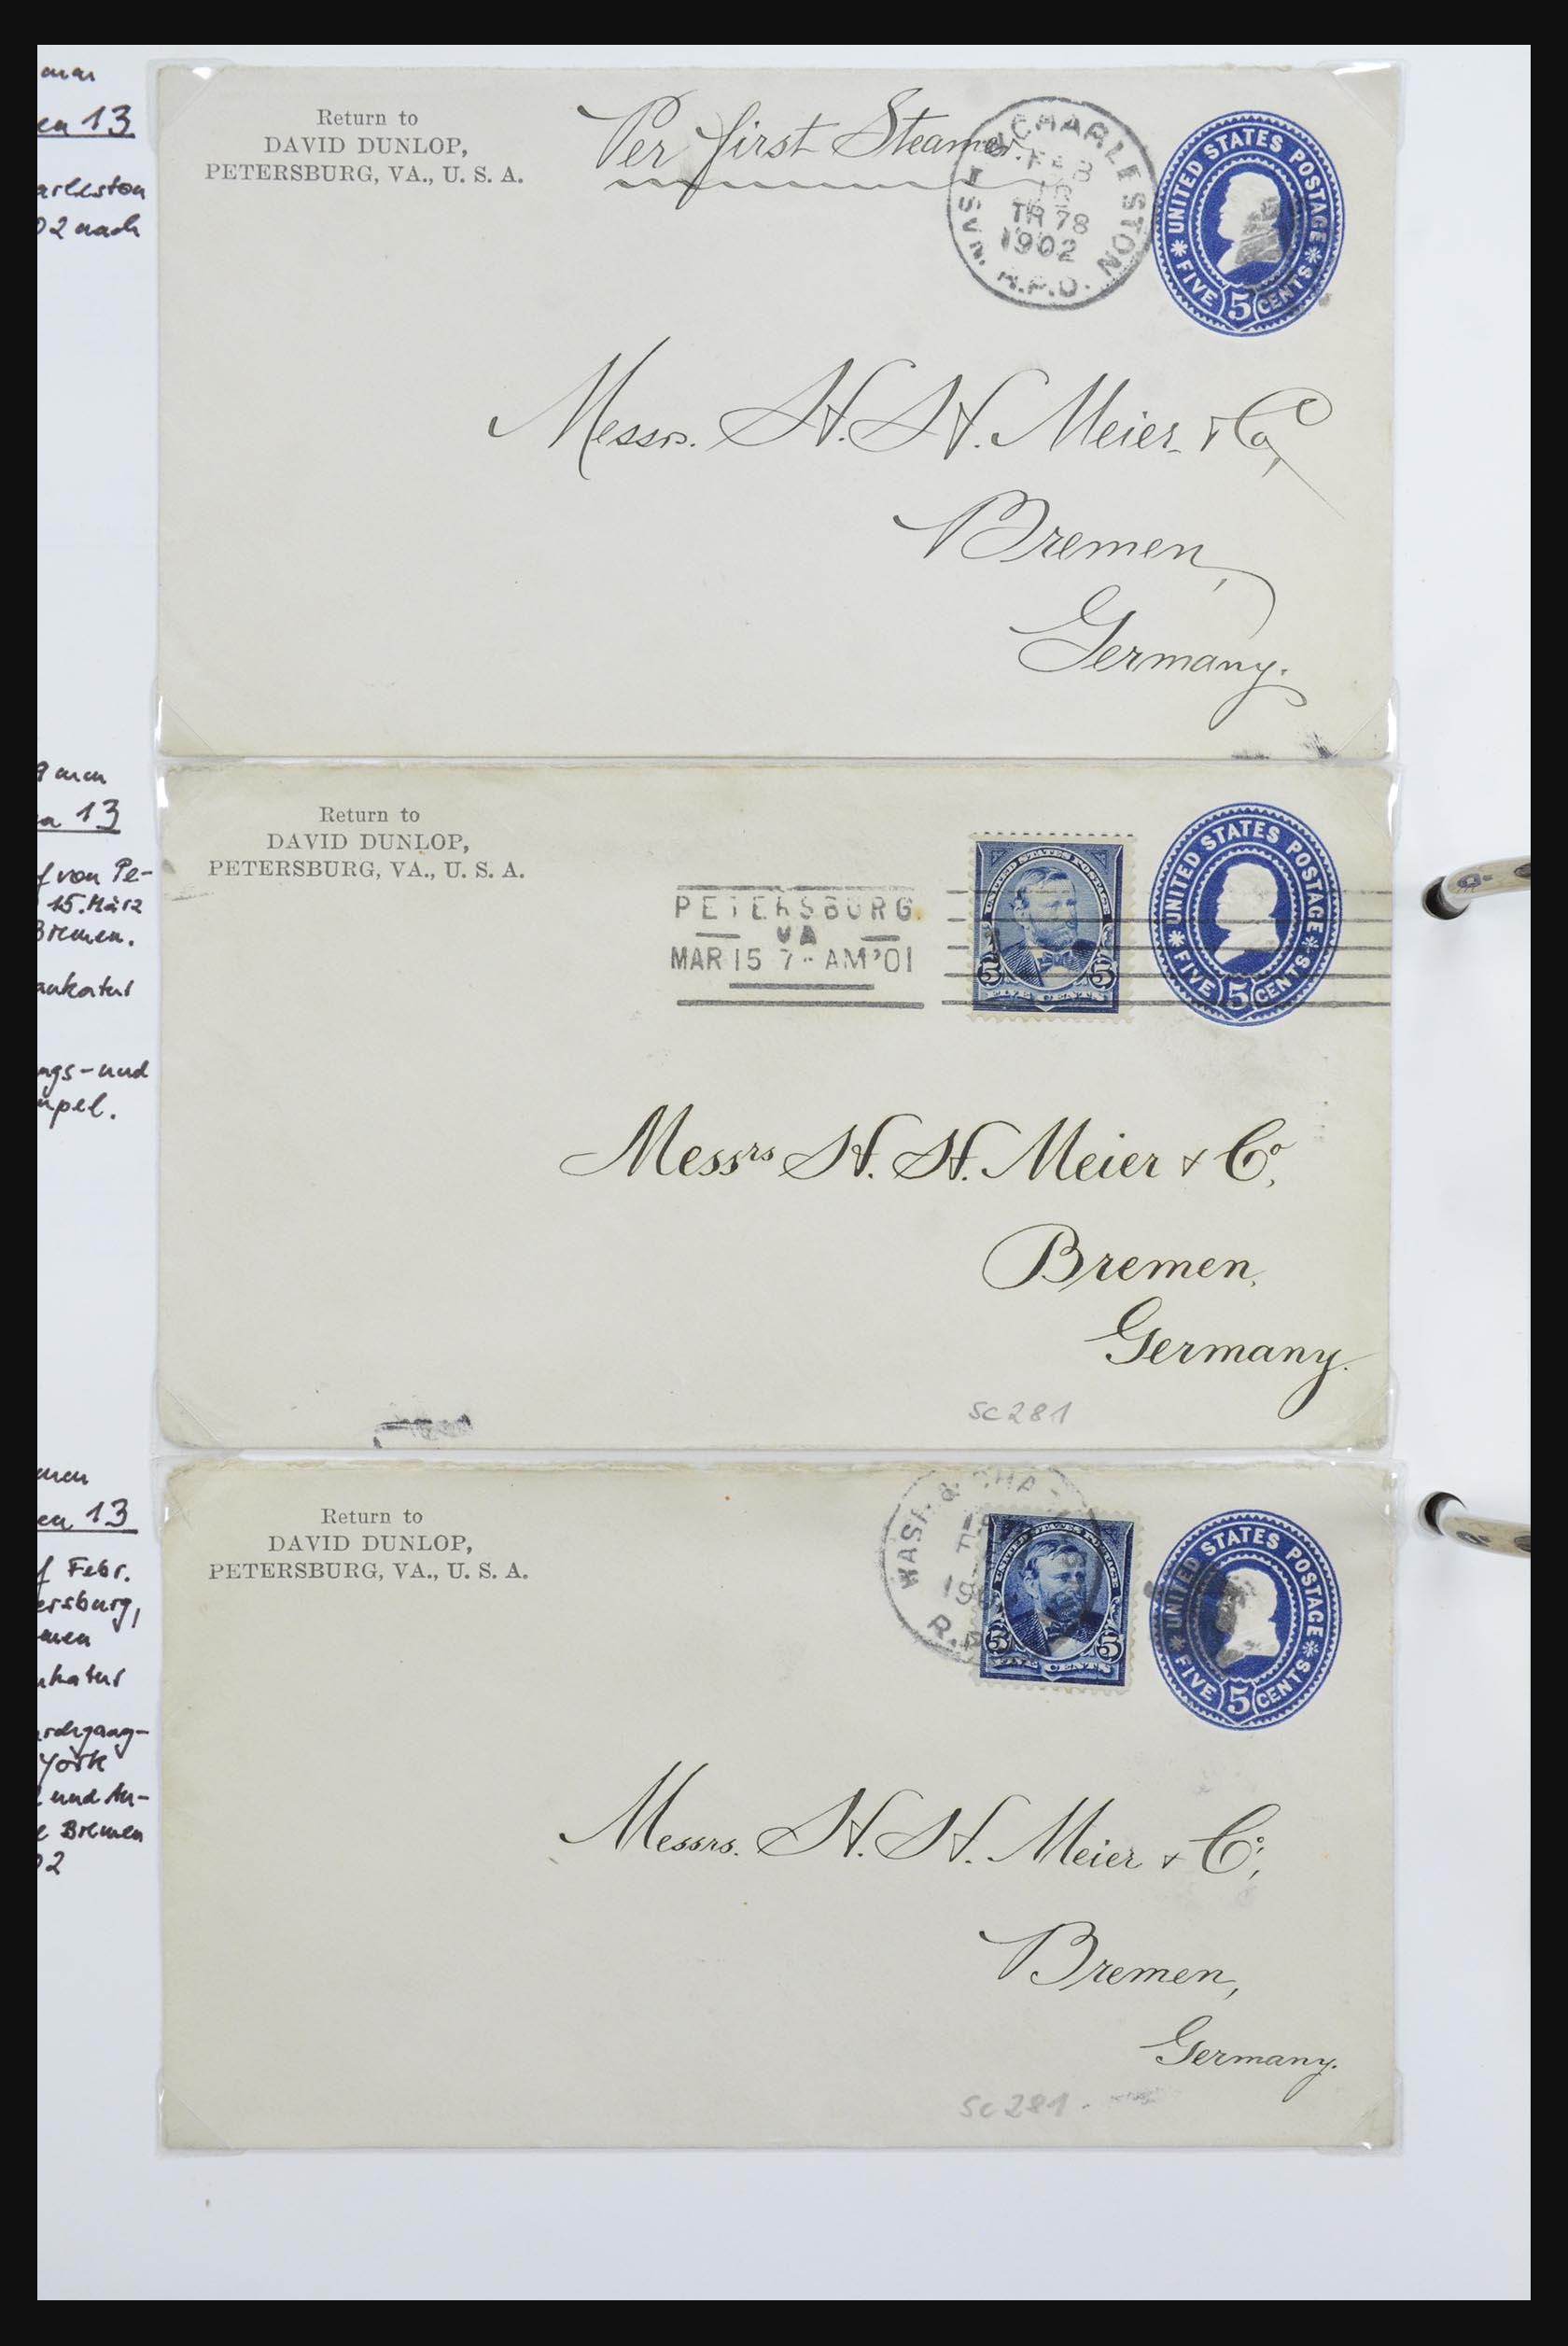 13
arleston
02 nach
Return to
DAVID DUNLOP,
PETERSBURG, VA., U. S. A.
Per first Steamer
WASH. & CHARLESTON
FEB
TR 78
1902
R.P.O.
UNITED STATES POSTAGE
FIVE 5 CENTS
Messrs. H. H. Meier & Co,
Bremen,
Germany.
mm
13
f von Pe-
15. März
Bremen.
ankatur
ngs- und
mpel.
Return to
DAVID DUNLOP,
PETERSBURG, VA., U. S. A.
PETERSBURG
VA
MAR 15 7- AM '01
UNITED STATES POSTAGE
5 5
FIVE CENTS
UNITED STATES POSTAGE
FIVE 5 CENTS
Messrs H. H. Meier & Co,
Bremen,
Germany.
SC 281
13
f Febr.
ersburg,
emen
nkatur
urchgang-
York
und An-
e Bremen
02
Return to
DAVID DUNLOP,
PETERSBURG, VA., U. S. A.
WASH. & CHA
R.P
UNITED STATES POSTAGE
5 5
FIVE CENTS
UNITED STATES POSTAGE
FIVE 5 CENTS
Messrs. H. H. Meier & Co,
Bremen,
Germany.
Sc 281.